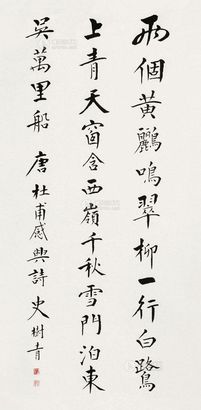 兩個黃鸝鳴翠柳一行白鷺
上青天窗含西嶺千秋雪門泊東
吳萬里船 唐杜甫感興詩 史樹青